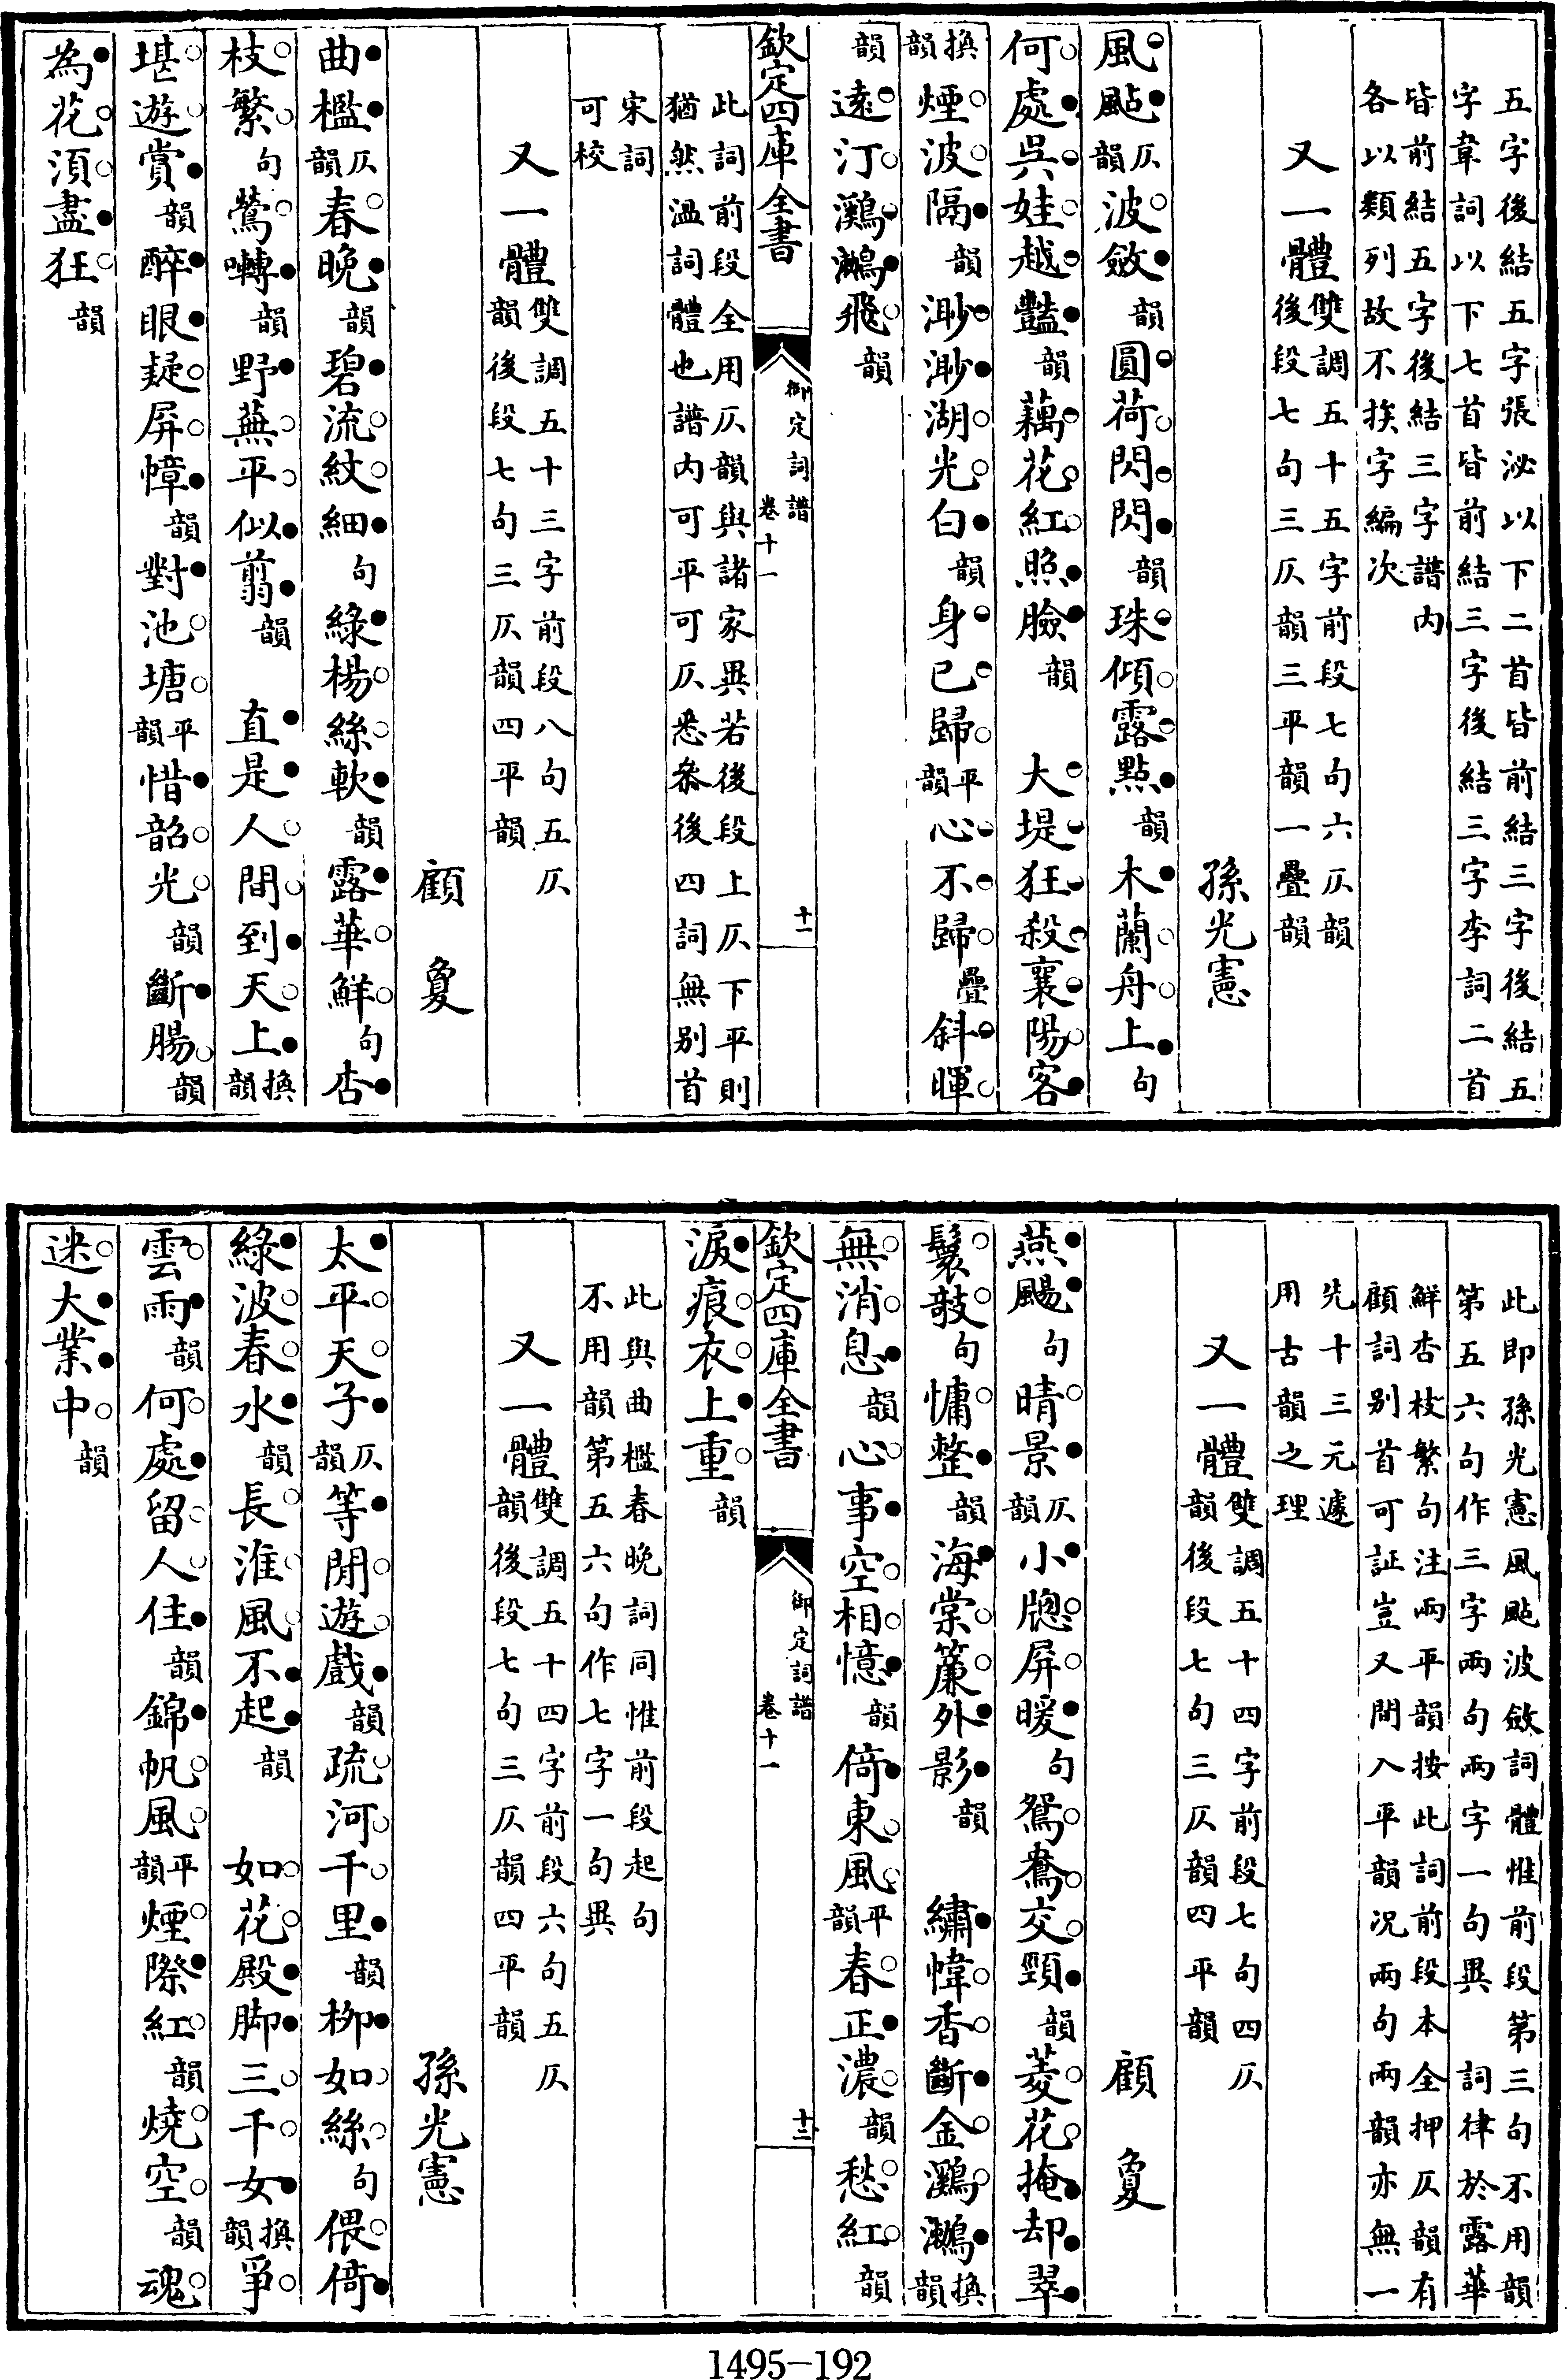 五字後結五字張泌以下二首皆前結三字後結五
字韋詞以下七首皆前結三字後結三字李詞二首
皆前結五字後結三字譜内
各以類列故不挨字編次
又一體雙調五十五字前段七句六仄韻
後段七句三仄韻三平韻一疊韻
孫光憲
風颭仄韻波斂韻圓荷閃閃韻珠傾露點韻木蘭舟上句
何處吳娃越豔韻藕花紅照臉韻 大堤狂殺襄陽客
換韻煙波隔韻渺渺湖光白韻身已歸平韻心不歸疊斜暉
韻遠汀鸂鶒飛韻
欽定四庫全書 御定詞譜 卷十一 十一
此詞前段全用仄韻與諸家異若後段上仄下平則
猶然溫詞體也譜内可平可仄悉叅後四詞無别首
宋詞
可校
又一體雙調五十三字前段八句五仄
韻後段七句三仄韻四平韻
顧夐
曲檻仄韻春晚韻碧流紋細句綠楊絲軟韻露華鮮句杏
枝繁句鶯囀韻野蕪平似翦韻 直是人間到天上換韻
堪遊賞韻醉眼疑屏幛韻對池塘平韻惜韶光韻斷腸韻
為花須盡狂韻
此即孫光憲風颭波斂詞體惟前段第三句不用韻
第五六句作三字兩句兩字一句異 詞律於露華
鮮杏枝繁句注兩平韻按此詞前段本全押仄韻有
顧詞别首可証豈又間入平韻况兩句兩韻亦無一
先十三元遽
用古韻之理
又一體雙調五十四字前段七句四仄
韻後段七句三仄韻四平韻
顧夐
燕颺句晴景仄韻小牕屏暖句鴛鴦交頸韻菱花掩却翠
鬟攲句慵整韻海棠簾外影韻 繡幃香斷金鸂鶒換韻
無消息韻心事空相憶韻倚東風平韻春正濃韻愁紅韻
淚痕衣上重韻
欽定四庫全書 御定詞譜 卷十一 十二
此與曲檻春晚詞同惟前段起句
不用韻第五六句作七字一句異
又一體雙調五十四字前段六句五仄
韻後段七句三仄韻四平韻
孫光憲
太平天子仄韻等閒遊戲韻疏河千里韻柳如絲句偎倚
綠波春水韻長淮風不起韻 如花殿脚三千女換韻爭
雲雨韻何處留人住韻錦帆風平韻煙際紅韻燒空韻魂
迷大業中韻
1495-192